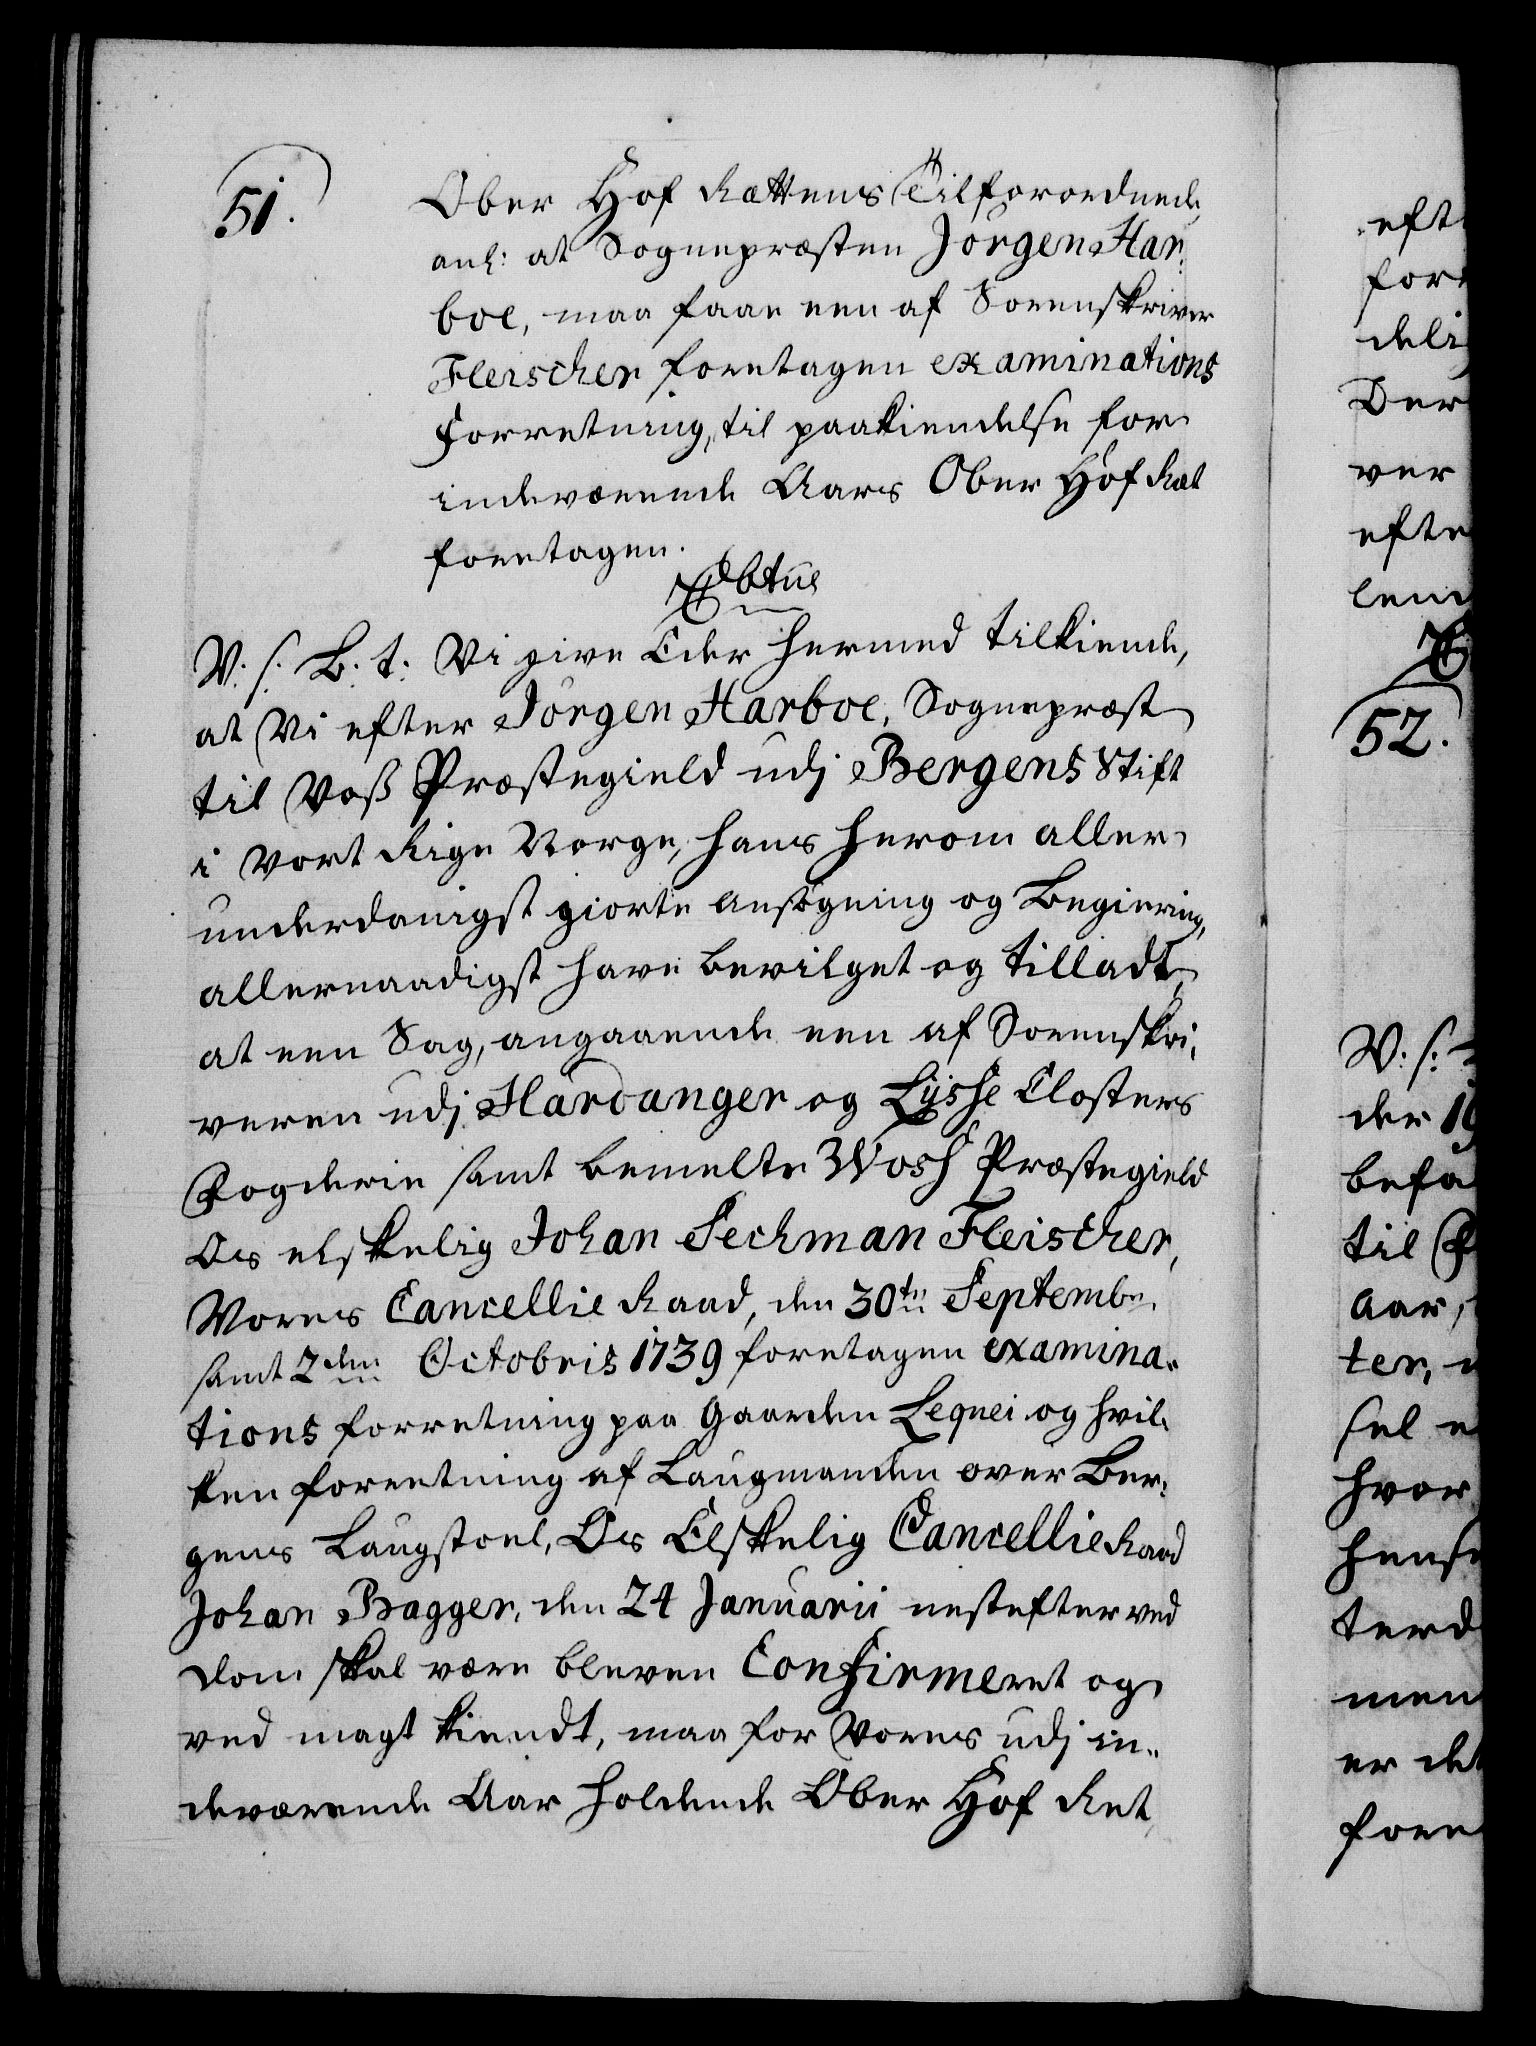 51.
Ober Hof Rættens Tilforordnede,
anl: at Sognepræsten Jörgen Har-
boe, maa faae een af Sorenskriver
Fleischer foretagen examinations
Forretning, til paakiendelse for
indeværende Aars Ober Hof Ræt
foretagen.
V. S. B. t: Vi give Eder hermed tilkiende,
at Vi efter Jörgen Harboe, Sognepræst
til Voss Præstegield udj Bergens Stift
i Vort Rige Norge, hans herom aller-
underdanigst giorte Ansögning og Begiering,
allernaadigst have bevilget og tilladt,
at een Sag, angaaende een af Sorenskri-
veren udj Hardanger og Lÿsse Closters
Fogderie samt bemelte Woss Præstegield
Os elskelig Johan Sechman Fleischer,
Vores Cancellie Raad, den 30te Septembr.
samt 2den Octobris 1739 foretagen examina-
tions forretning paa Gaarden Leqnei og hvil-
ken forretning af Laugmanden over Ber-
gens Laugstoel, Os Elskelig Cancellie Raad
Johan Bagger, den 24 Januarii nestefter ved
Dom skal være bleven Confirmeret og
ved magt kiendt, maa for Vores udj in-
deværende Aar holdende Ober Hof Ret,
eft
for
deli
Der
ver
efte
lem
52.
V. S.
der 19
befa
til
Aar,
ter,
sel e
hvor
hense
terd
men
er det
fore